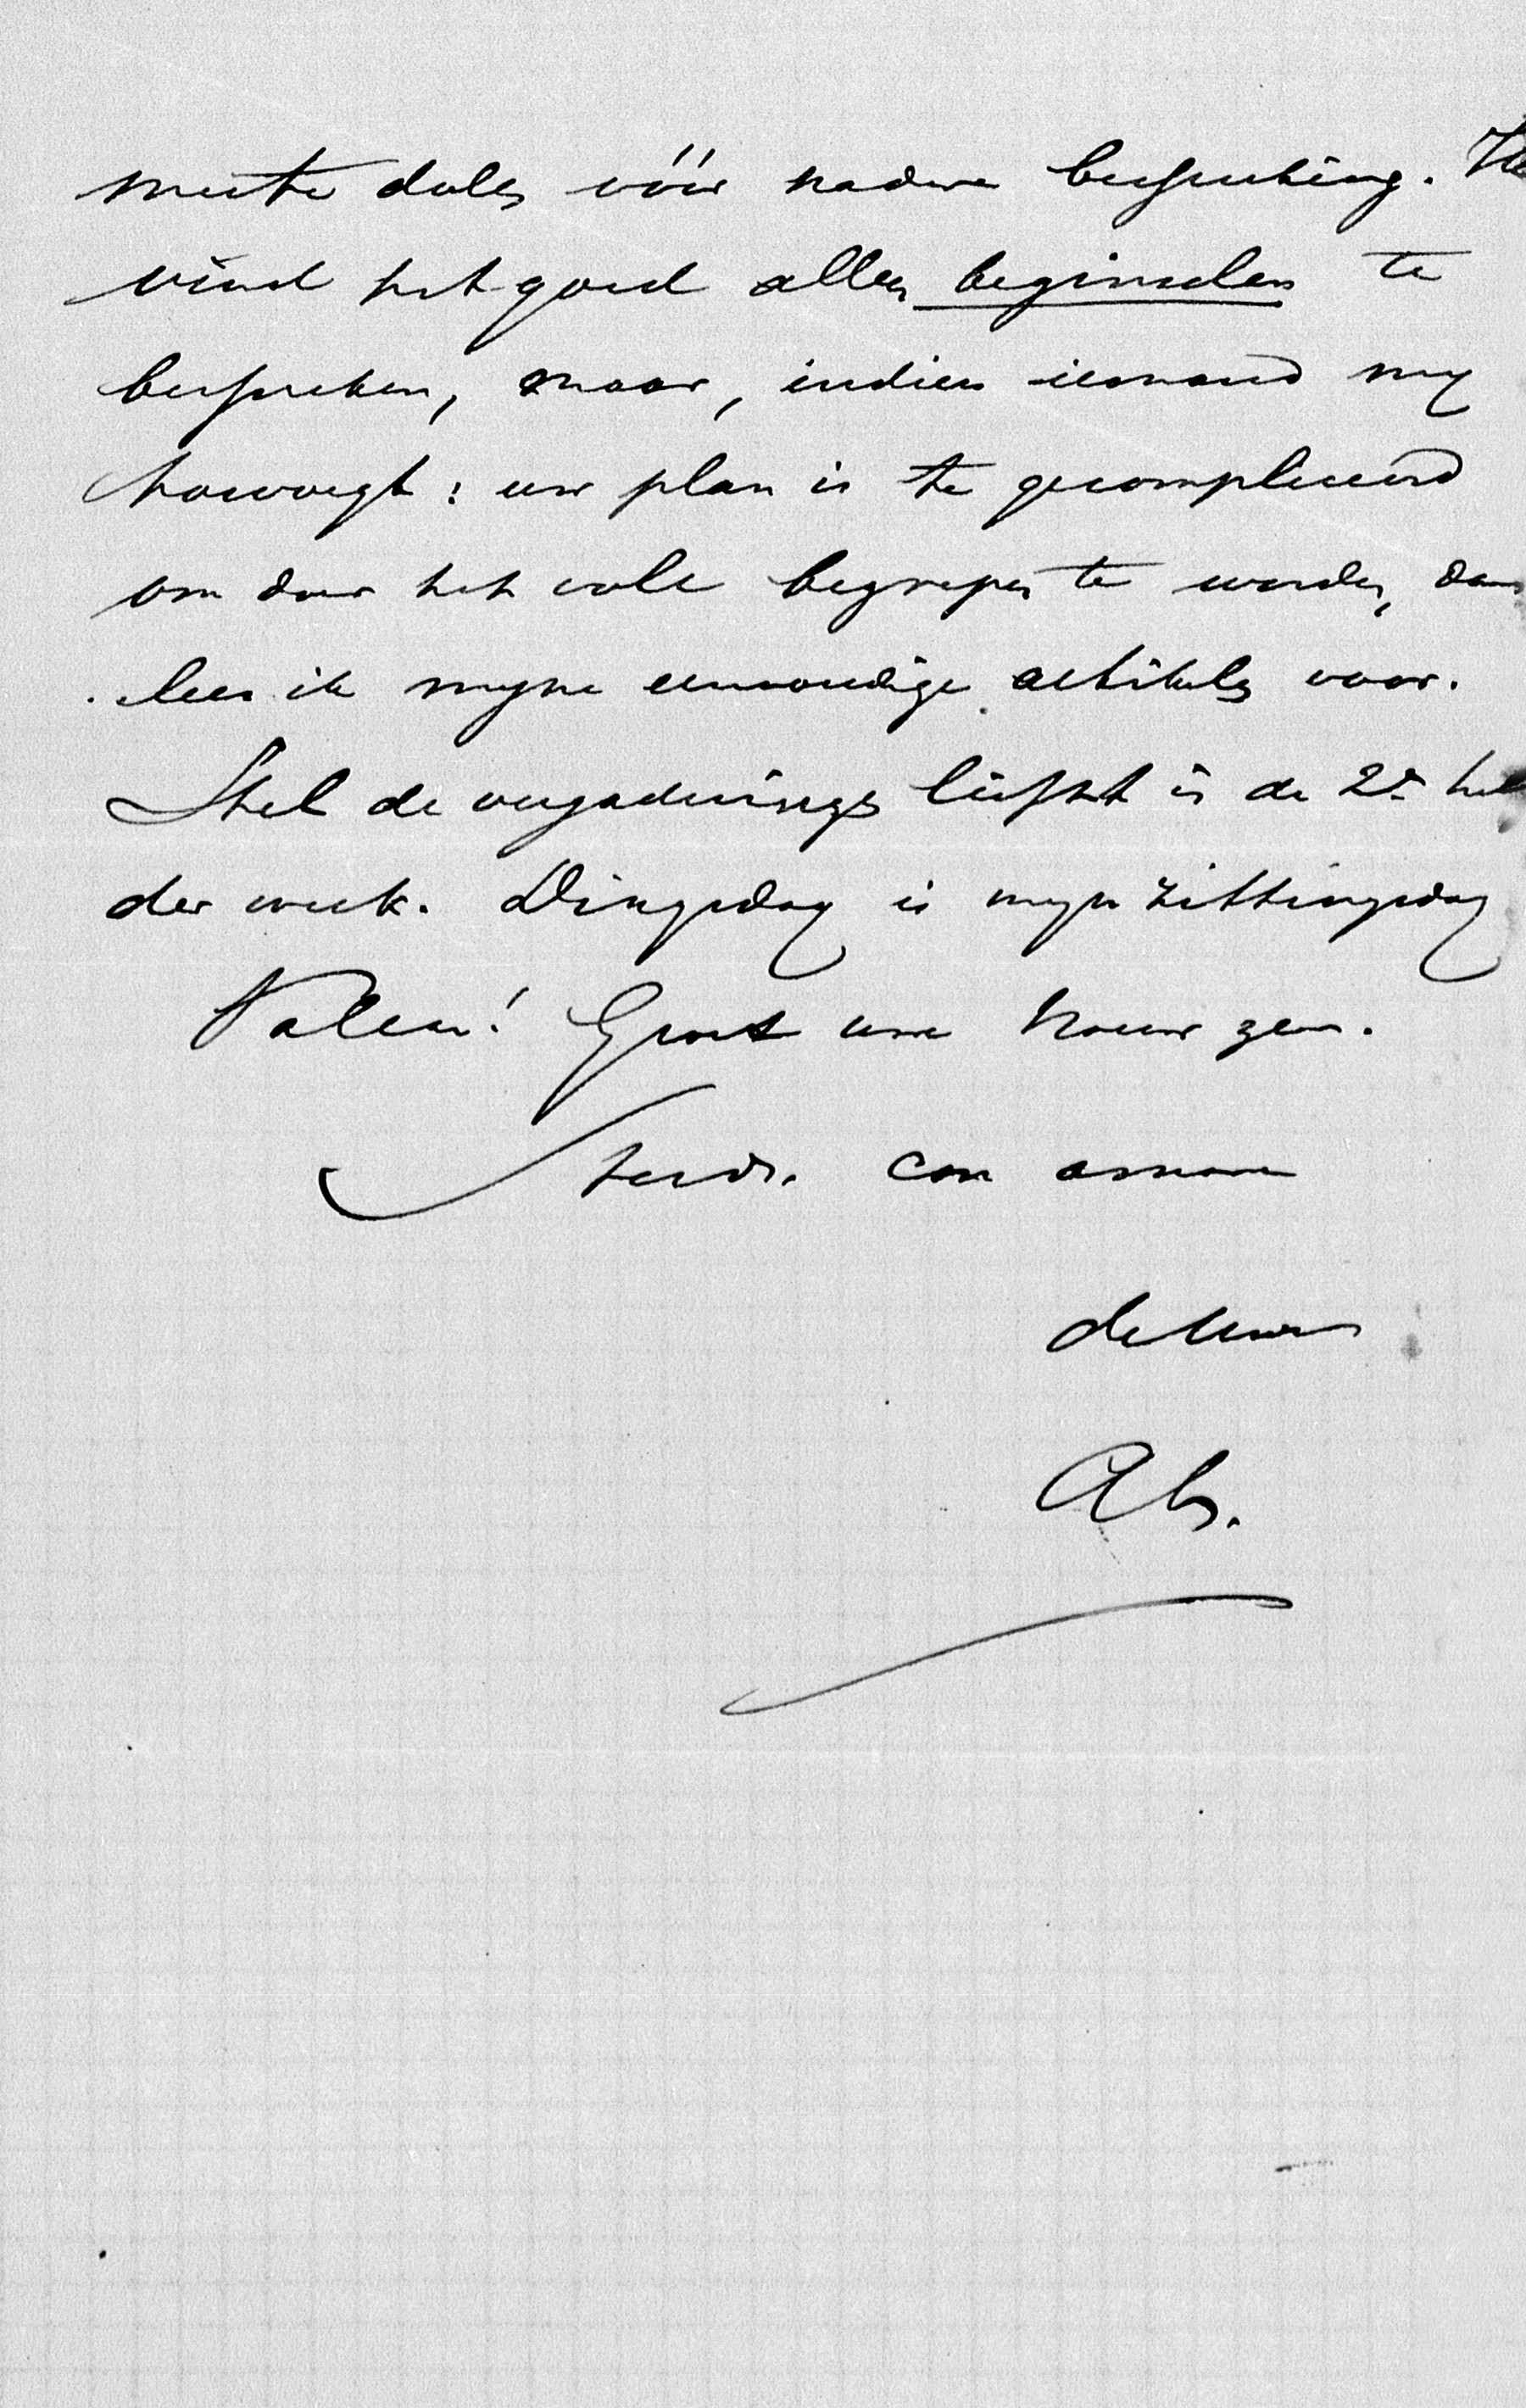 mede delen vóór nadere bespreking. Ik
vind het goed alleen beginselen te
bespreken, maar, indien iemand my
toevoegt: uw plan is te gecompliceerd
om door het volk begrepen te worden, dan
lees ik myne eenvoudige artikels voor.
Stel de vergaderings liefst in de 2e helft
der week. Dingsdag is myn zittingsdag
Valeas! Groet uwe huisgen.
Steeds. con amore
de Uwe
Ab.